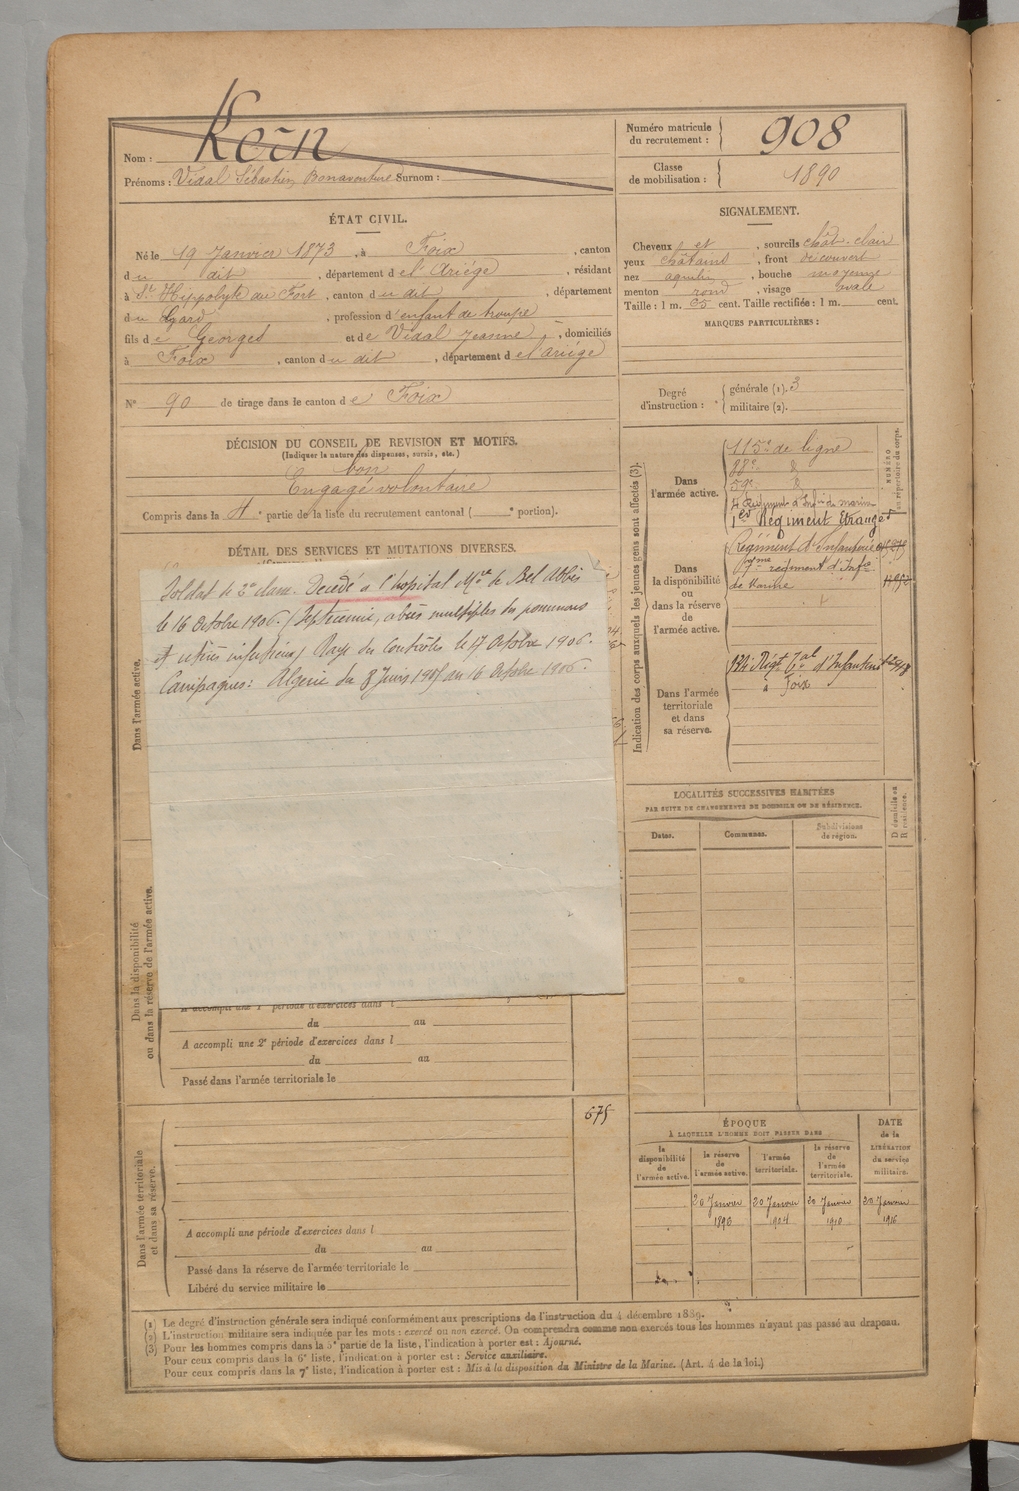 Nom : Kern
Prénoms : Vidal Sébastien Bonaventure Surnom :
Numéro matricule
du recrutement : 908
Classe
de mobilisation : 1890
ÉTAT CIVIL.
Né le 19 Janvier 1873, à Foix, canton
du dit, département de l'Ariége, résidant
à St Hippolyte du Fort, canton du dit, département
du Gard, profession d'enfant de troupe
fils de Georges et de Vidal Jeanne, domiciliés
à Foix, canton du dit, département de l'ariége
N° 90 de tirage dans le canton de Foix
DÉCISION DU CONSEIL DE REVISION ET MOTIFS.
(Indiquer la nature des dispenses, sursis, etc.)
bon
Engagé volontaire
Compris dans la 4e partie de la liste du recrutement cantonal ( e portion).
DÉTAIL DES SERVICES ET MUTATIONS DIVERSES.
Soldat de 2e classe. Décédé à l'hopital Mre de Bel Abbès
le 16 Octobre 1906. (Septicémie, abcès multiples des poumons
Rayé des Contrôles le 17 Octobre 1906.
Campagnes: Algérie du 8 Juin 1905 au 16 Octobre 1906.
Dans l'armée active.
Dans la disponibilité
ou dans la réserve de l'armée active.
A accompli une 1e période d'exercices dans l
du au
A accompli une 2e période d'exercices dans l
du au
Passé dans l'armée territoriale le
675
Dans l'armée territoriale
et dans sa réserve.
A accompli une période d'exercices dans l
du au
Passé dans la réserve de l'armée territoriale le
Libéré du service militaire le
SIGNALEMENT.
Cheveux et, sourcils chât. clair
yeux châtains, front découvert
nez aquilin, bouche moyenne
menton rond, visage ovale
Taille : 1 m. 65 cent. Taille rectifiée : 1 m. cent.
MARQUES PARTICULIÈRES :
Degré
d'instruction :
générale (1). 3
militaire (2).
Indication des corps auxquels les jeunes gens sont affectés (3).
NUMÉRO
au répertoire du corps.
Dans
l'armée active.
115e de ligne
88e
59e
4e Régiment d'Infie de marine
1er Régiment Etranger
Dans
la disponibilité
ou
dans la réserve
de
l'armée active.
Régiment d'Infanterie
régiment d'Infie
de Marine
Dans l'armée
territoriale
et dans
sa réserve.
Régt Tal d'Infanterie
à Foix
LOCALITÉS SUCCESSIVES HABITÉES
PAR SUITE DE CHANGEMENTS DE DOMICILE OU DE RÉSIDENCE.
Dates. Communes. Subdivisions
de région.
D domicile ou
R résidence.
ÉPOQUE
À LAQUELLE L'HOMME DOIT PASSER DANS
DATE
de la
LIBÉRATION
du service
militaire.
la
disponibilité
de
l'armée active.
la réserve
de
l'armée active.
l'armée
territoriale.
la réserve
de
l'armée
territoriale.
20 Janvier 20 Janvier 20 Janvier 20 Janvier
1894 1904 1910 1916
(1) Le degré d'instruction générale sera indiqué conformément aux prescriptions de l'instruction du 4 décembre 1889.
(2) L'instruction militaire sera indiquée par les mots : exercé ou non exercé. On comprendra comme non exercés tous les hommes n'ayant pas passé au drapeau.
(3) Pour les hommes compris dans la 5e partie de la liste, l'indication à porter est : Ajourné.
Pour ceux compris dans la 6e liste, l'indication à porter est : Service auxiliaire.
Pour ceux compris dans la 7e liste, l'indication à porter est : Mis à la disposition du Ministre de la Marine. (Art. 4 de la loi.)